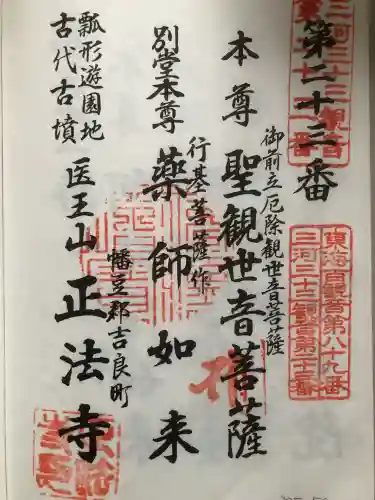 第二十三番
東海百観音第八十九番
三河三十三観音第二十三番
御前立厄除観世音菩薩
本尊 聖観世音菩薩
行基菩薩作
別堂本尊 薬師如来
幡豆郡吉良町
医王山 正法寺
瓢形遊園地
古代古墳